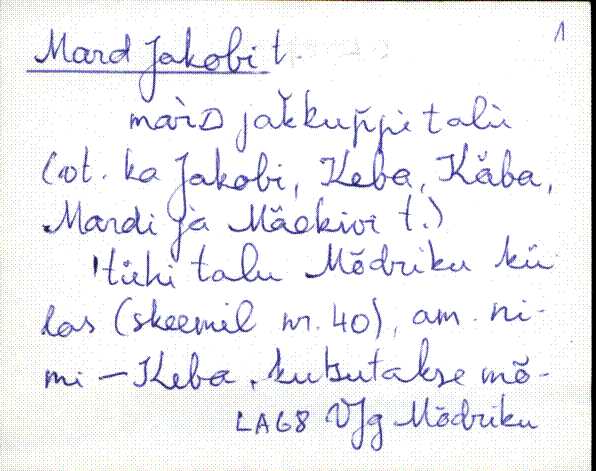 1
Mard Jakobi t.
màrD jak̆kup̆pi talù
(vt. ka Jakobi, Keba, Käba,
Mardi ja Mäekivi t.)
'tühi talu Mõdriku kü-
las (skeemil nr. 40), am. ni-
mi – Keba, kutsutakse mõ-
LA68 VJg Mõdriku